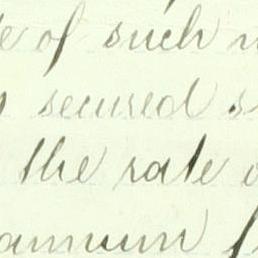 of such
secured
the rate
annum